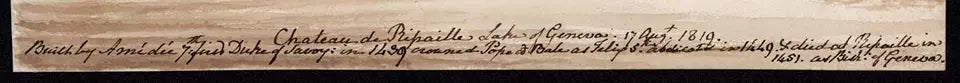 Chateau de Ripaille Lake of Geneva. 17 Augt. 1819.
Built by Amédée 7th first Duke of Savoy: in 1439 crowned Pope at Bale as Felix 5th abdicated in 1449. & died at Ripaille in
1451. as Bishp. of Geneva.